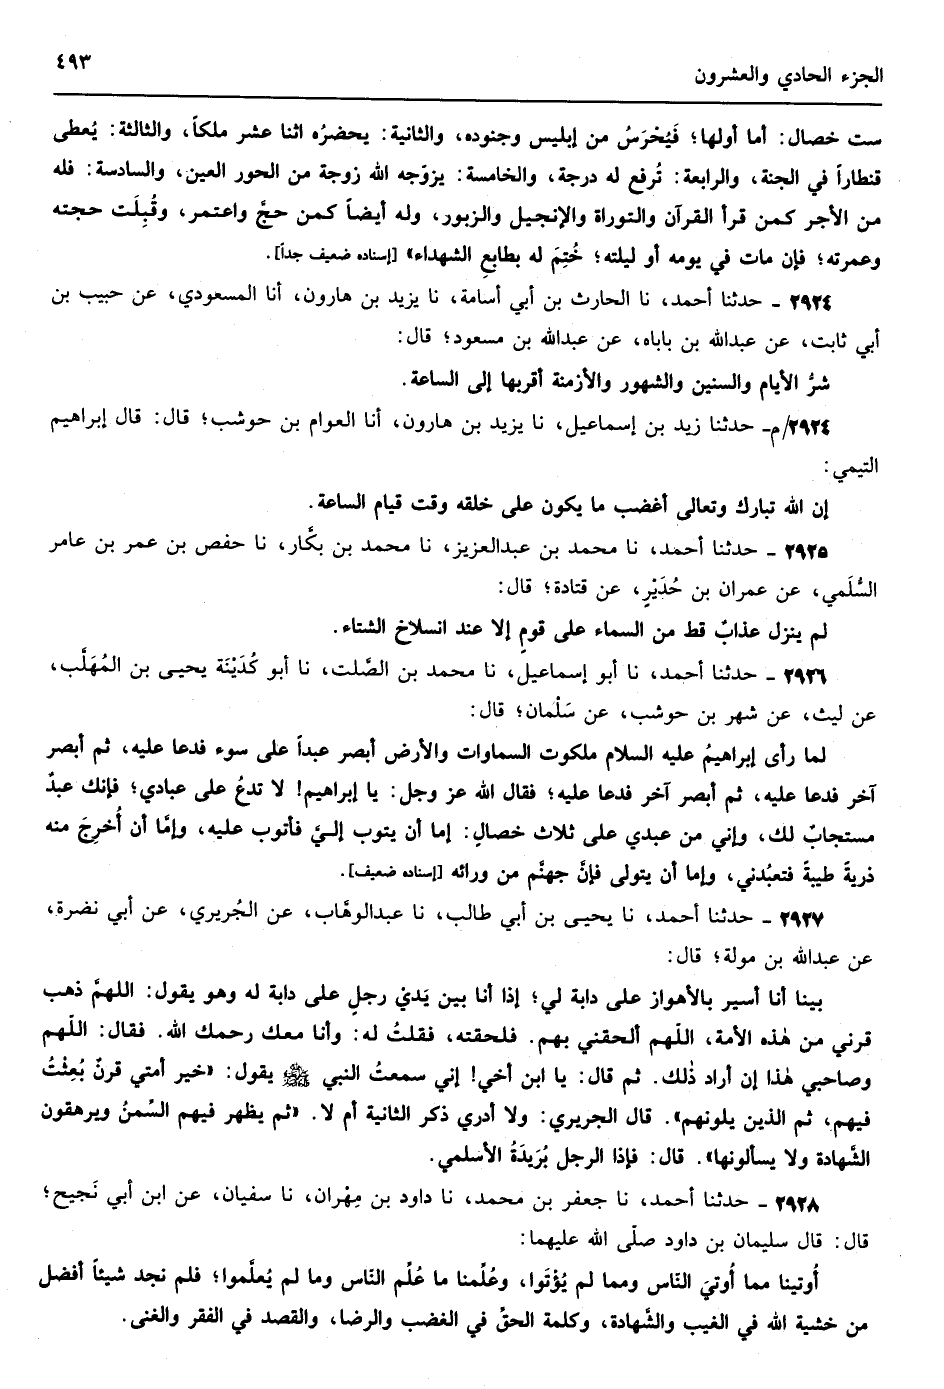 ٤٩٣
الجزء الحادي والعشرون
ست خصال: أما أولها؛ فَيُحْرَسُ من إبليس وجنوده، والثانية: يحضرُه اثنا عشر ملكاً، والثالثة: يُعطى
قنطاراً في الجنة، والرابعة: تُرفع له درجة، والخامسة: يزوّجه الله زوجة من الحور العين، والسادسة: فله
من الأجر كمن قرأ القرآن والتوراة والإنجيل والزبور، وله أيضاً كمن حجَّ واعتمر، وقُبِلَت حجته
وعمرته؛ فإن مات في يومه أو ليلته؛ خُتِمَ له بطابع الشهداء» [إسناده ضعيف جداً].
٢٩٢٤ ـ حدثنا أحمد، نا الحارث بن أبي أسامة، نا يزيد بن هارون، أنا المسعودي، عن حبيب بن
أبي ثابت، عن عبدالله بن باباه، عن عبدالله بن مسعود؛ قال:
شرُّ الأيام والسنين والشهور والأزمنة أقربها إلى الساعة.
٢٩٢٤/م ـ حدثنا زيد بن إسماعيل، نا يزيد بن هارون، أنا العوام بن حوشب؛ قال: قال إبراهيم
التيمي:
إن الله تبارك وتعالى أغضب ما يكون على خلقه وقت قيام الساعة.
٢٩٢٥ ـ حدثنا أحمد، نا محمد بن عبدالعزيز، نا محمد بن بكَّار، نا حفص بن عمر بن عامر
السُّلَمي، عن عمران بن حُدَيْرٍ، عن قتادة؛ قال:
لم ينزل عذابٌ قط من السماء على قومٍ إلا عند انسلاخ الشتاء.
٢٩٢٦ ـ حدثنا أحمد، نا أبو إسماعيل، نا محمد بن الصَّلت، نا أبو كُدَيْنَة يحيى بن المُهَلَّب،
عن ليث، عن شهر بن حوشب، عن سَلْمان؛ قال:
لما رأى إبراهيمُ عليه السلام ملكوت السماوات والأرض أبصر عبداً على سوء فدعا عليه، ثم أبصر
آخر فدعا عليه، ثم أبصر آخر فدعا عليه؛ فقال الله عز وجل: يا إبراهيم! لا تدعُ على عبادي؛ فإنك عبدٌ
مستجابٌ لك، وإني من عبدي على ثلاث خصالٍ: إما أن يتوب إليَّ فأتوب عليه، وإمَّا أن أُخرِجَ منه
ذريةً طيبةً فتعبُدني، وإما أن يتولى فإنَّ جهنَّم من ورائه [إسناده ضعيف].
٢٩٢٧ ـ حدثنا أحمد، نا يحيى بن أبي طالب، نا عبدالوهَّاب، عن الجُريري، عن أبي نضرة،
عن عبدالله بن مولة؛ قال:
بينا أنا أسير بالأهواز على دابة لي؛ إذا أنا بين يَديْ رجلٍ على دابة له وهو يقول: اللهمَّ ذهب
قرني من هٰذه الأمة، اللّهم ألحقني بهم. فلحقته، فقلتُ له: وأنا معك رحمك الله. فقال: اللّهم
وصاحبي هٰذا إن أراد ذٰلك. ثم قال: يا ابن أخي! إني سمعتُ النبي ﷺ يقول: «خير أمتي قرنٌ بُعِثْتُ
فيهم، ثم الذين يلونهم». قال الجريري: ولا أدري ذكر الثانية أم لا. «ثم يظهر فيهم السِّمنُ ويرهقون
الشَّهادة ولا يسألونها». قال: فإذا الرجل بُرَيدَةُ الأسلمي.
٢٩٢٨ ـ حدثنا أحمد، نا جعفر بن محمد، نا داود بن مِهْران، نا سفيان، عن ابن أبي نَجيح؛
قال: قال سليمان بن داود صلّى الله عليهما:
أُوتينا مما أُوتيَ النَّاس ومما لم يُؤتَوا، وعُلِّمنا ما عُلِّم النَّاس وما لم يُعلَّموا؛ فلم نجد شيئاً أفضل
من خشية الله في الغيب والشَّهادة، وكلمة الحقِّ في الغضب والرضا، والقصد في الفقر والغنى.